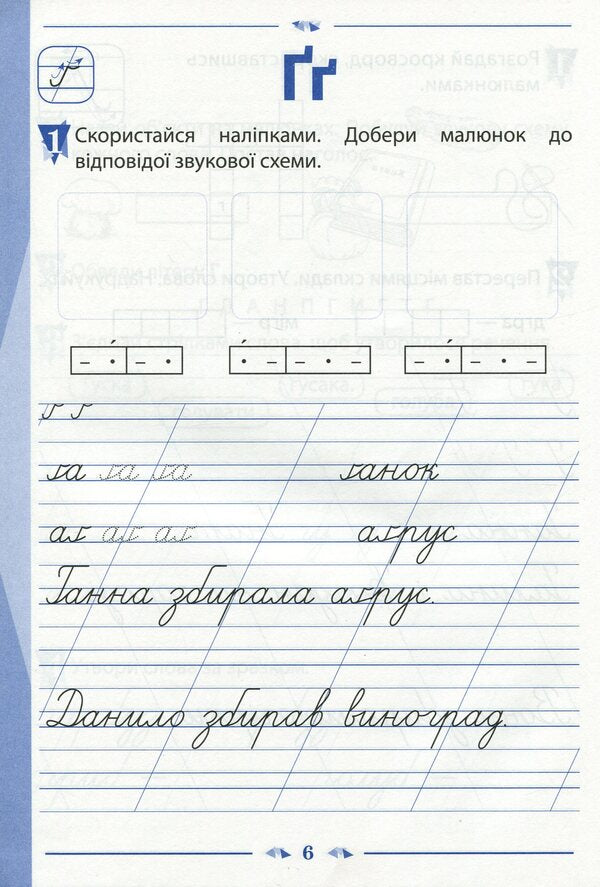 Ґґ
1 Скористайся наліпками. Добери малюнок до
відповідої звукової схеми.
ґ ґ
ґа ґа ґа ґанок
аґ аґ аґ аґрус
Ганна збирала аґрус.
Данило збирав виноград.
6